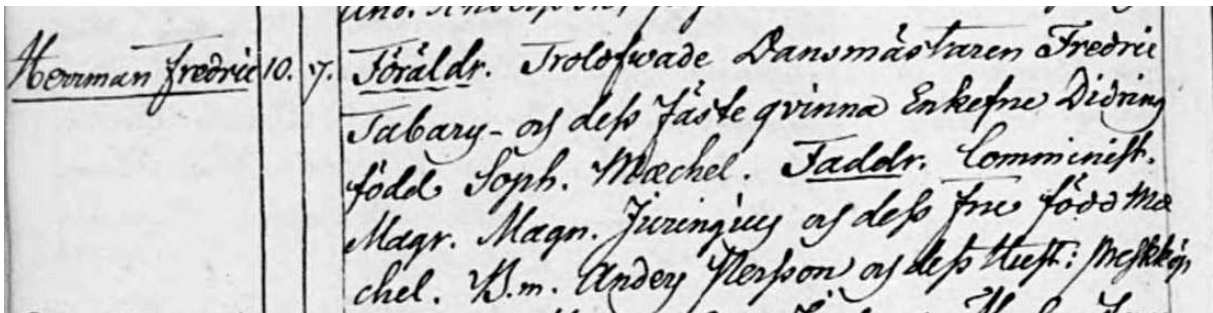 Herrman Fredric 10. 7. Föräldr. Trolofwade Dansmästaren Fredric
Tabary - och dess Fästeqvinna Enkefrue Didring
född Soph. Mæchel. Faddr. Comminist.
Magr. Magn. Juringius och dess frue född Mæ
chel. B.m. Anders Persson och dess Hust: